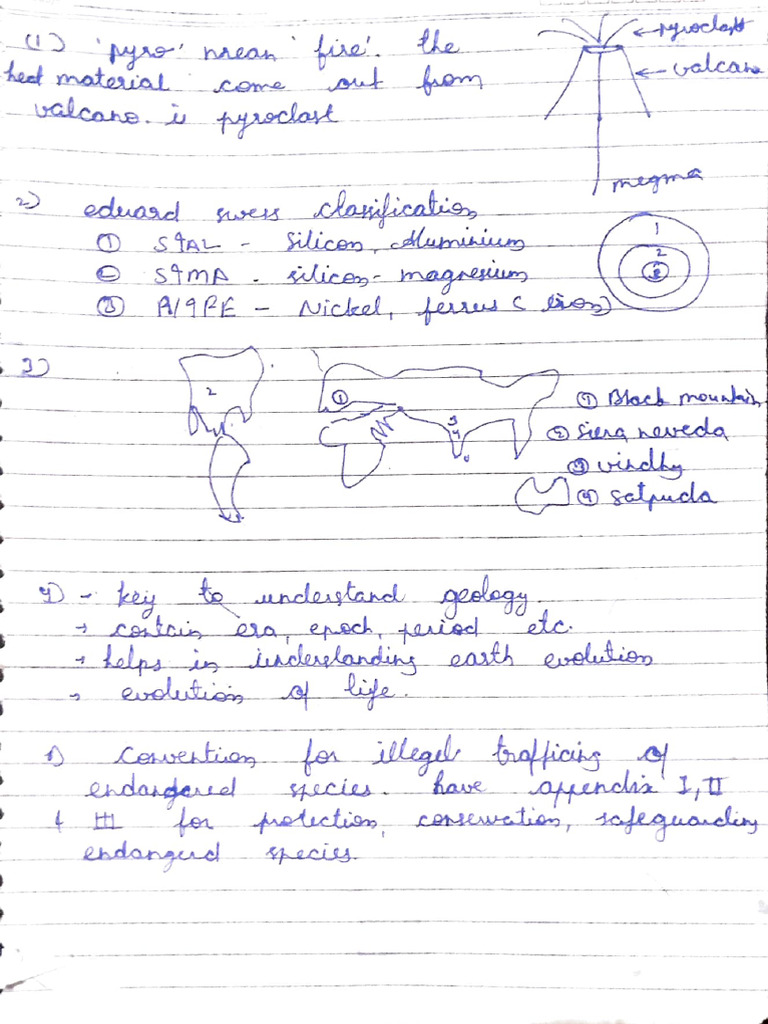 (1) 'pyro' mean 'fire'. the
heat material come out from
valcano. is pyroclast
← pyroclast
← valcano
megma
2) eduard swess classification
① SIAL - Silicon, Aluminium
② SIMA - silicon - magnesium
③ NIFE - Nickel, ferrus ( iron)
1
2
3
3)
2
①
3
4
① Black mountain
② Siera neveda
③ vindhy
④ satpuda
4) - key to understand geology.
→ contain era, epoch, period etc.
→ helps in understanding earth evolution
→ evolution of life.
5) Convention for illegel trafficing of
endangered species. have appendix I, II
& III for protection, conservation, safeguarding
endangerd species.